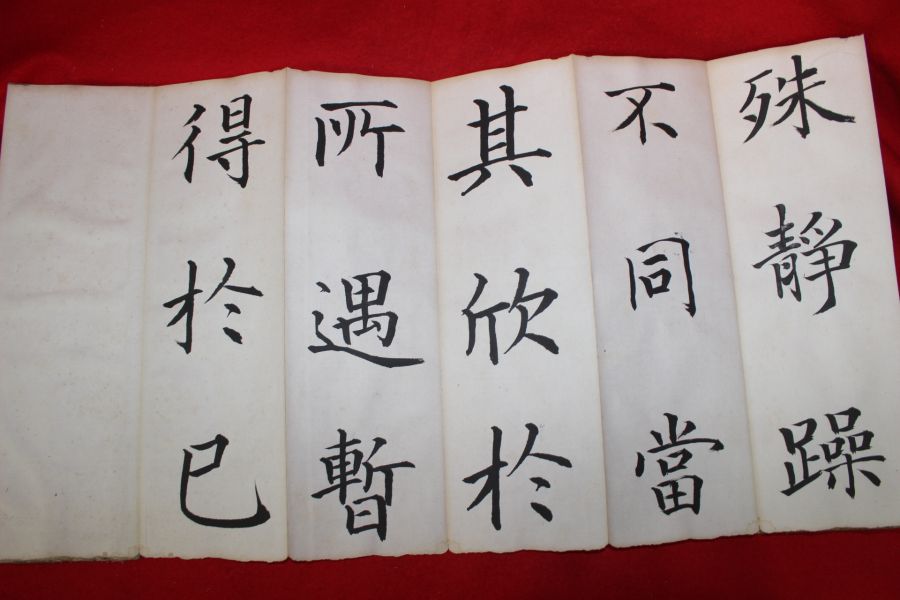 殊靜躁
不同當
其欣於
所遇暫
得於己